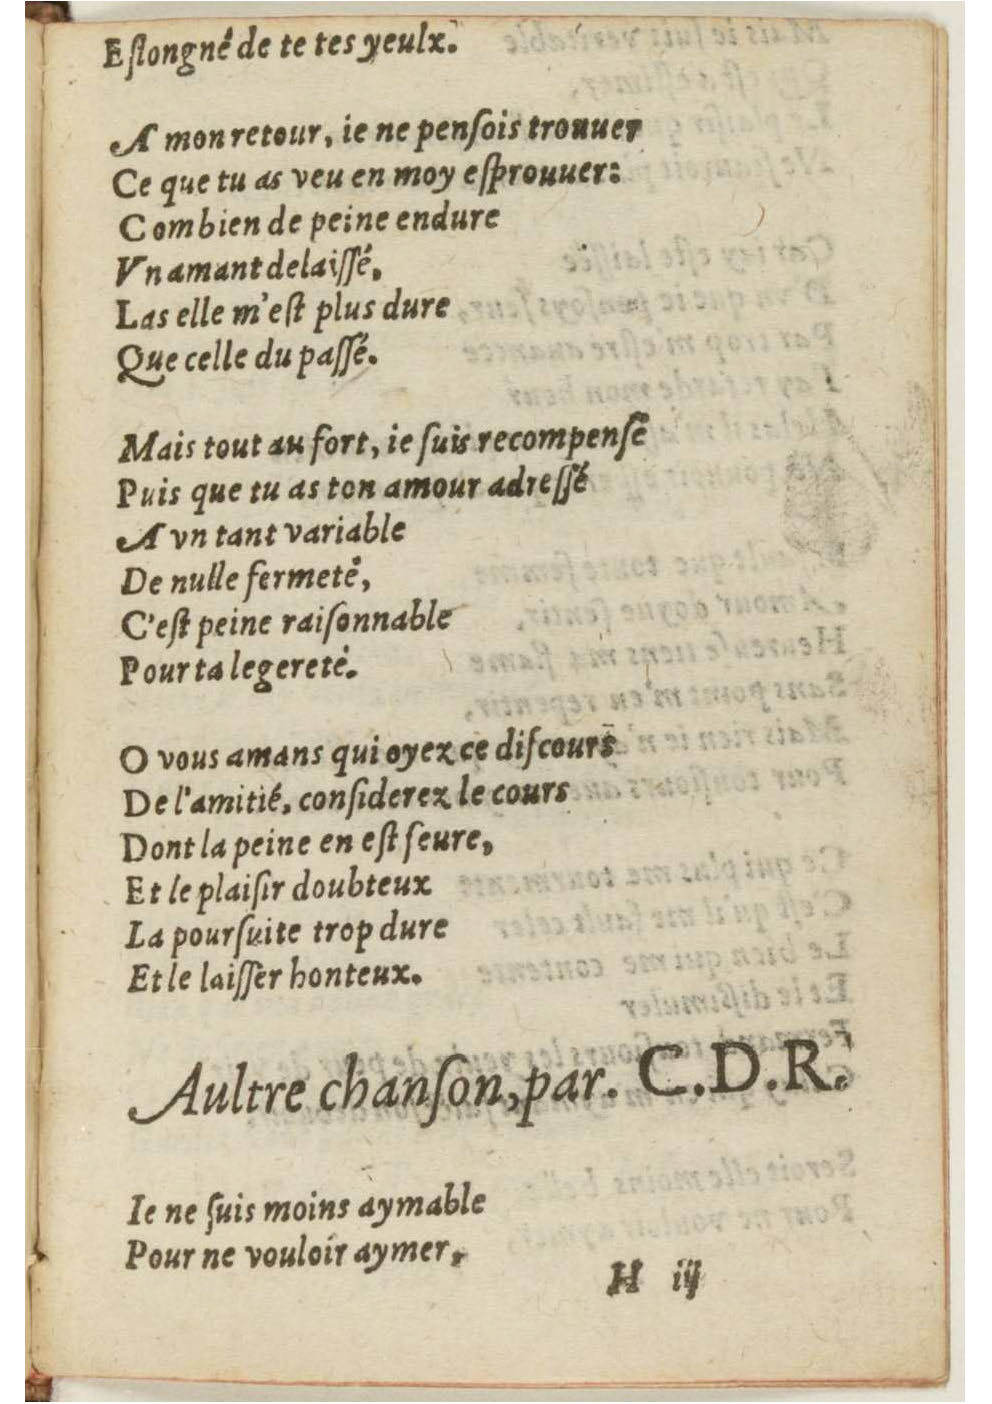 Eſlongné de te tes yeulx.
A mon retour, ie ne penſois trouuer
Ce que tu as veu en moy eſprouuer:
Combien de peine endure
Vn amant delaiſſé,
Las elle m'eſt plus dure
Que celle du paſſé.
Mais tout au fort, ie ſuis recompenſé
Puis que tu as ton amour adreſſé
A vn tant variable
De nulle fermeté,
C'eſt peine raiſonnable
Pour ta legereté.
O vous amans qui oyez ce diſcours
De l'amitié, conſiderez le cours
Dont la peine en eſt ſeure,
Et le plaiſir doubteux
La pourſuite trop dure
Et le laiſſer honteux.
Aultre chanſon, par. C.D.R.
Ie ne ſuis moins aymable
Pour ne vouloir aymer,
H iij